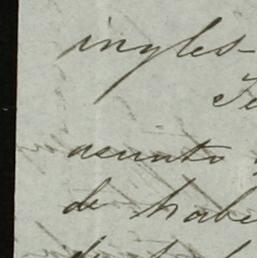 ingles-
Te
asunto
de habe